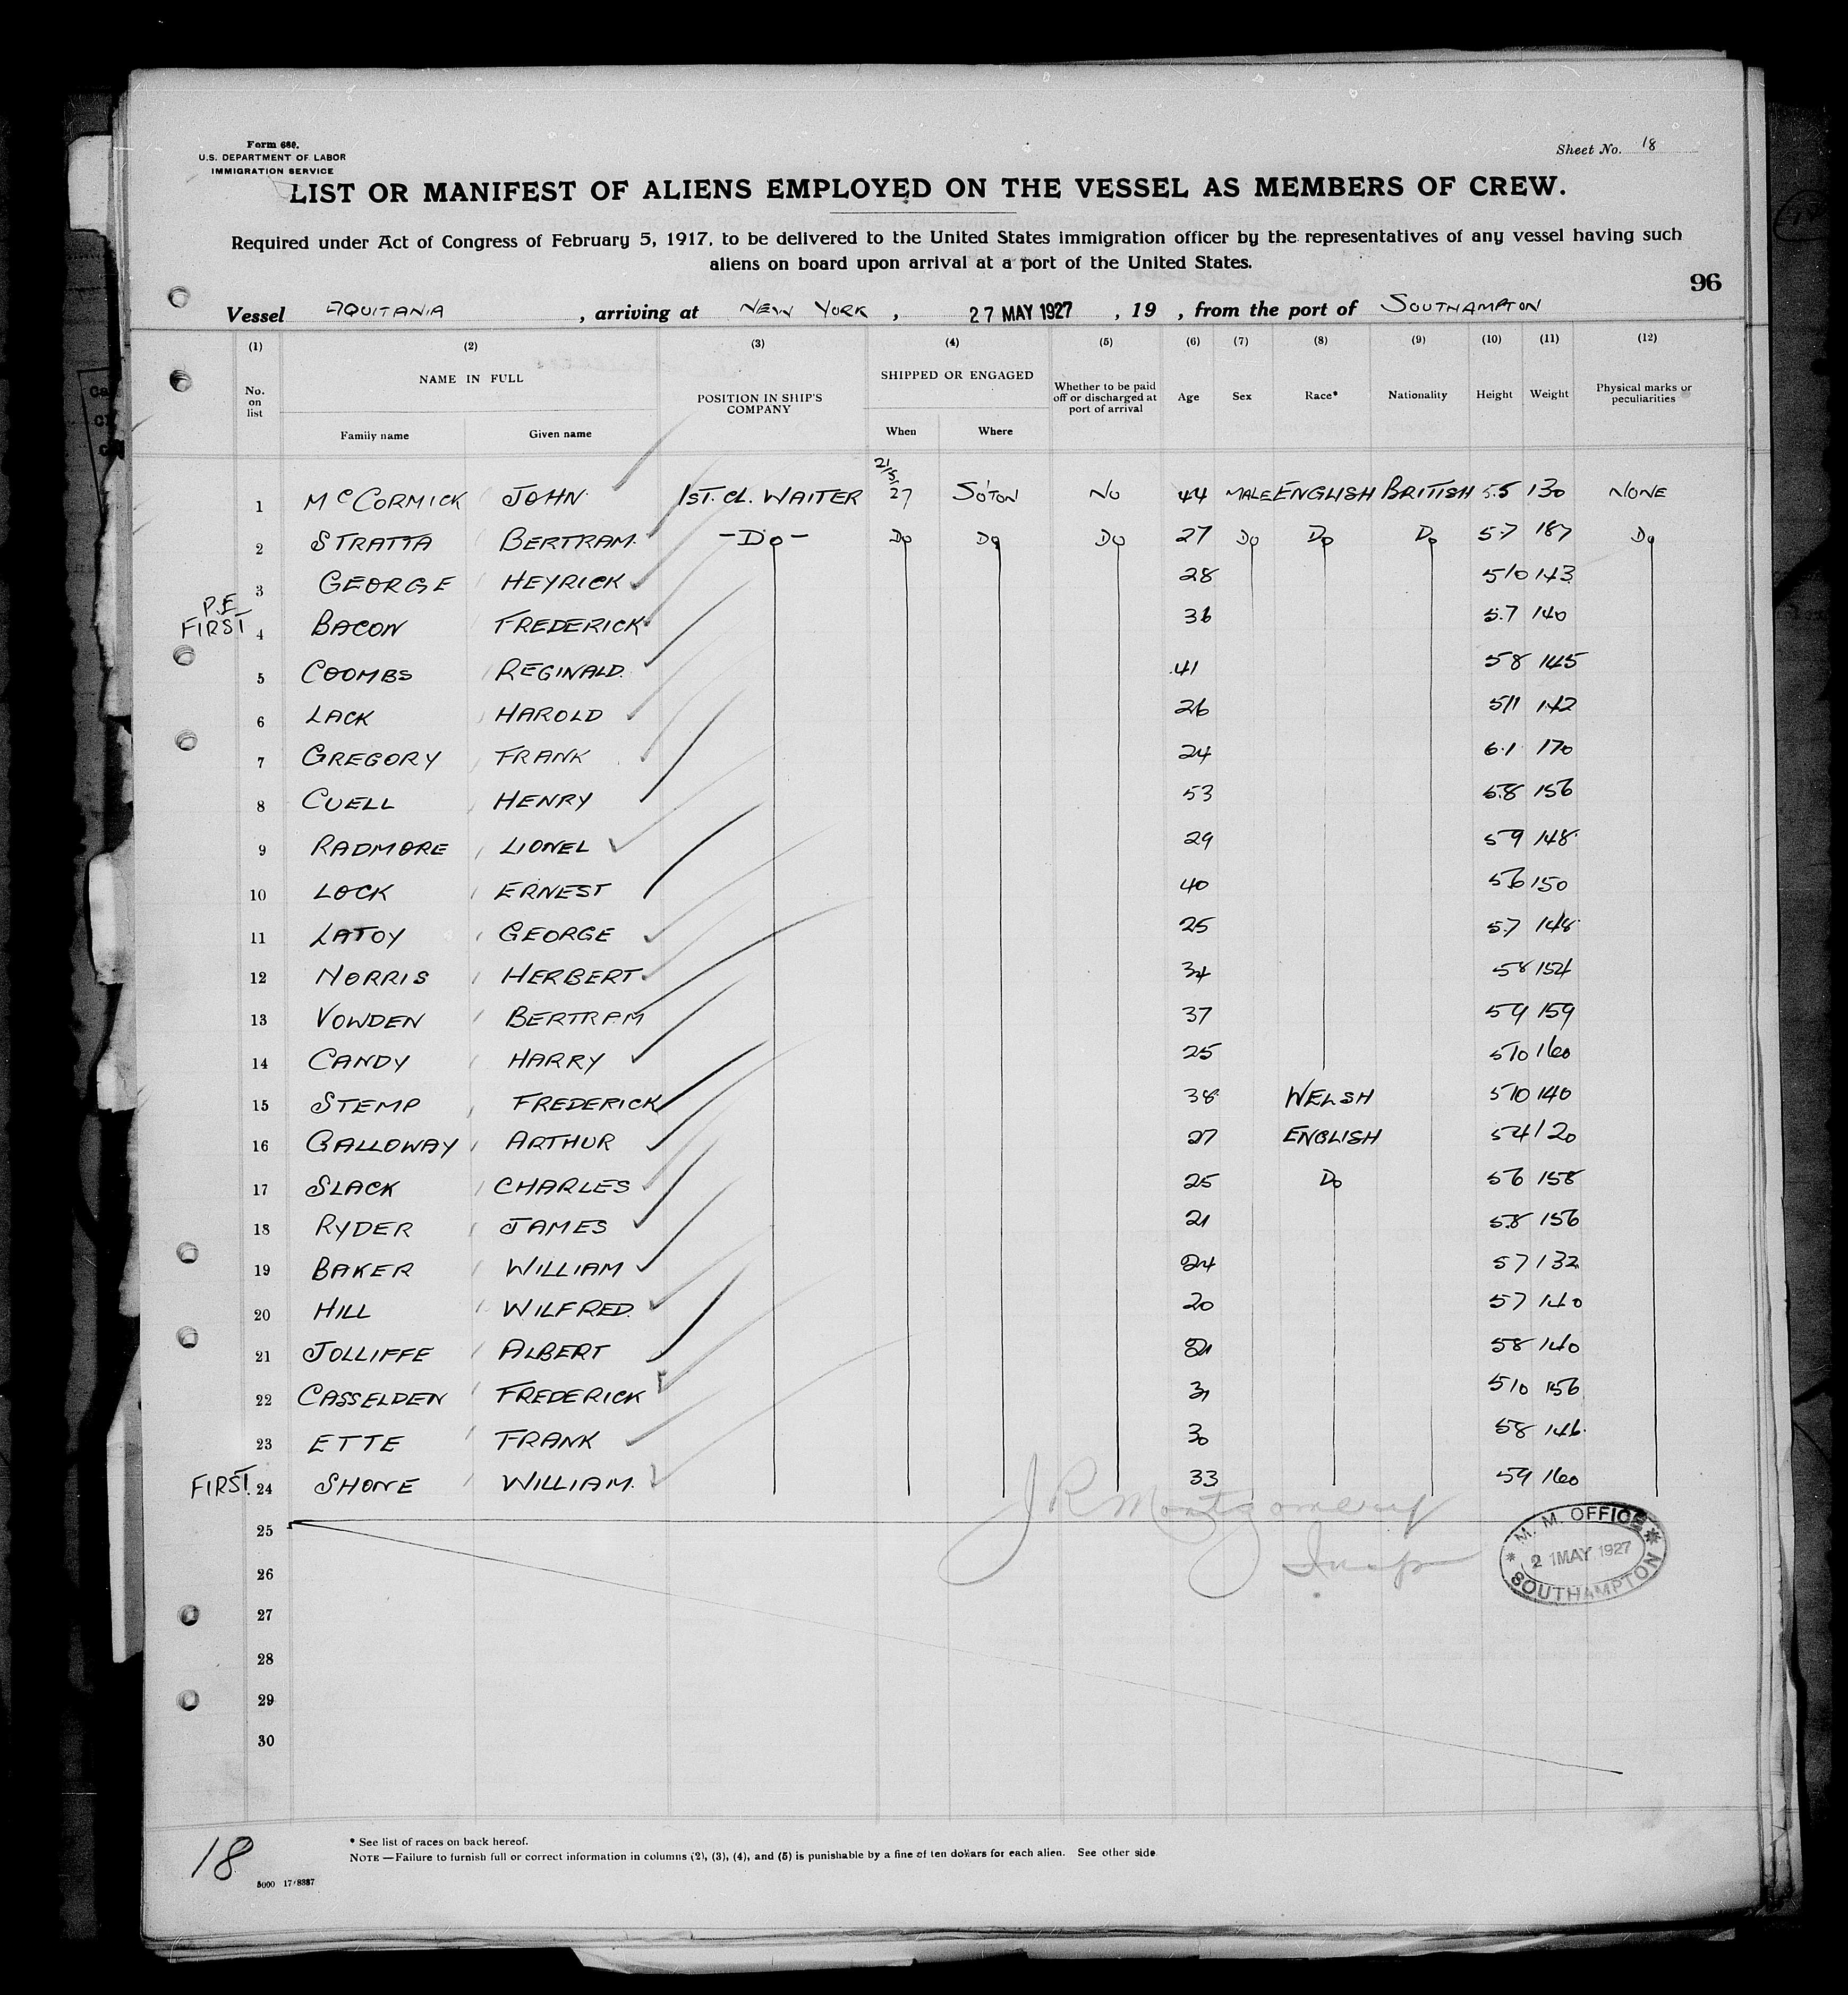 Form 680.
U.S. DEPARTMENT OF LABOR
IMMIGRATION SERVICE
Sheet No. 18
LIST OR MANIFEST OF ALIENS EMPLOYED ON THE VESSEL AS MEMBERS OF CREW.
Required under Act of Congress of February 5, 1917, to be delivered to the United States immigration officer by the representatives of any vessel having such
aliens on board upon arrival at a port of the United States.
96
Vessel AQUITANIA, arriving at NEW YORK, 27 MAY 1927, 19 , from the port of SOUTHAMPTON
(1) (2) (3) (4) (5) (6) (7) (8) (9) (10) (11) (12)
No. on list NAME IN FULL POSITION IN SHIP'S COMPANY SHIPPED OR ENGAGED Whether to be paid off or discharged at port of arrival Age Sex Race* Nationality Height Weight Physical marks or peculiarities
Family name Given name When Where
1 McCORMICK JOHN 1ST. CL. WAITER 21/5/27 SO'TON NO 44 MALE ENGLISH BRITISH 5.5 130 NONE
2 STRATTA BERTRAM. -Do- Do Do Do 27 Do Do Do 5.7 187 Do
3 GEORGE HEYRICK 28 5/10 143
P.E. FIRST 4 BACON FREDERICK 36 5.7 140
5 COOMBS REGINALD. 41 58 145
6 LACK HAROLD 26 5/11 142
7 GREGORY FRANK 24 6.1 170
8 CUELL HENRY 53 5.8 156
9 RADMORE LIONEL 29 59 148
10 LOCK ERNEST 40 56 150
11 LATOY GEORGE 25 5.7 148
12 NORRIS HERBERT 34 58 154
13 VOWDEN BERTRAM 37 59 159
14 CANDY HARRY 25 5/10 160
15 STEMP FREDERICK 38 WELSH 5/10 140
16 GALLOWAY ARTHUR 27 ENGLISH 54 120
17 SLACK CHARLES 25 Do 56 158
18 RYDER JAMES 21 5.8 156
19 BAKER WILLIAM 24 57 132
20 HILL WILFRED. 20 57 140
21 JOLLIFFE ALBERT 58 140
22 CASSELDEN FREDERICK 31 5/10 156
23 ETTE FRANK 30 58 146
FIRST. 24 SHONE WILLIAM. 33 59 160
25
J R Montgomery
Insp
M. M. OFFICE
21 MAY 1927
SOUTHAMPTON
26
27
28
29
30
18
* See list of races on back hereof.
NOTE—Failure to furnish full or correct information in columns (2), (3), (4), and (5) is punishable by a fine of ten dollars for each alien. See other side
5000 17/8887